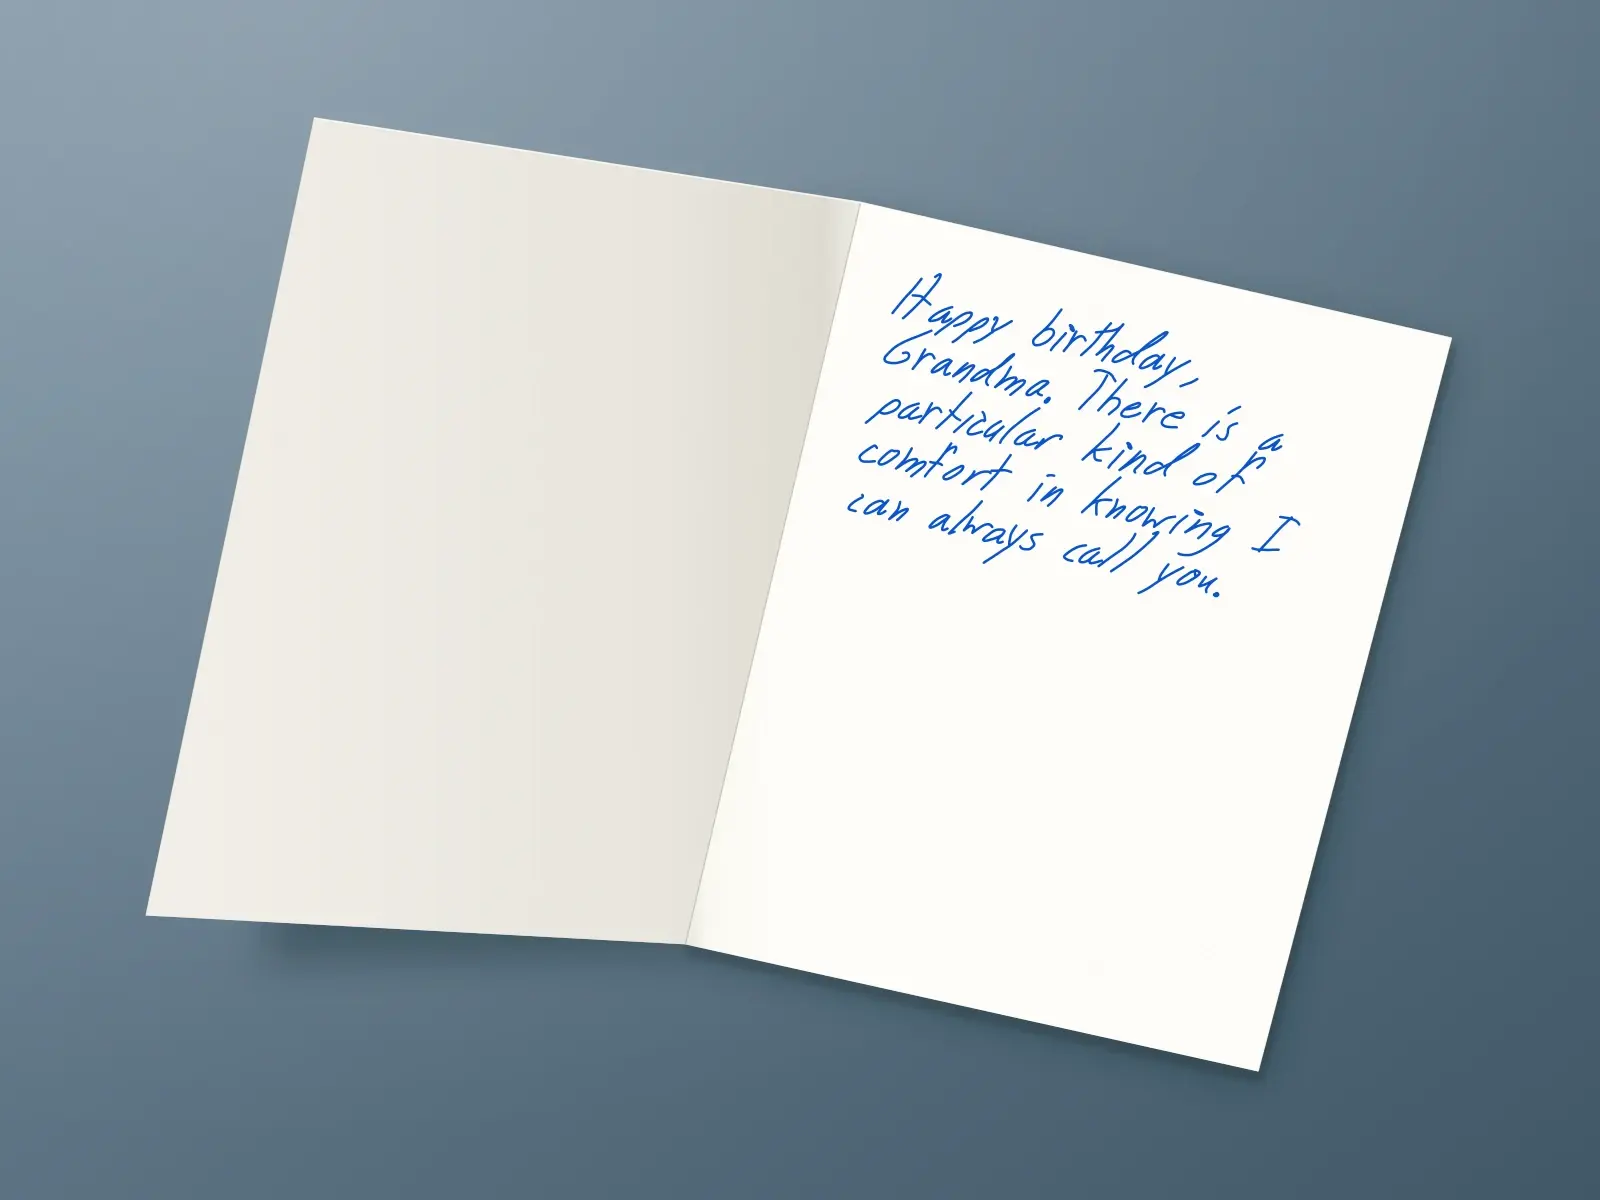 Happy birthday,
Grandma. There is a
particular kind of
comfort in knowing I
can always call you.